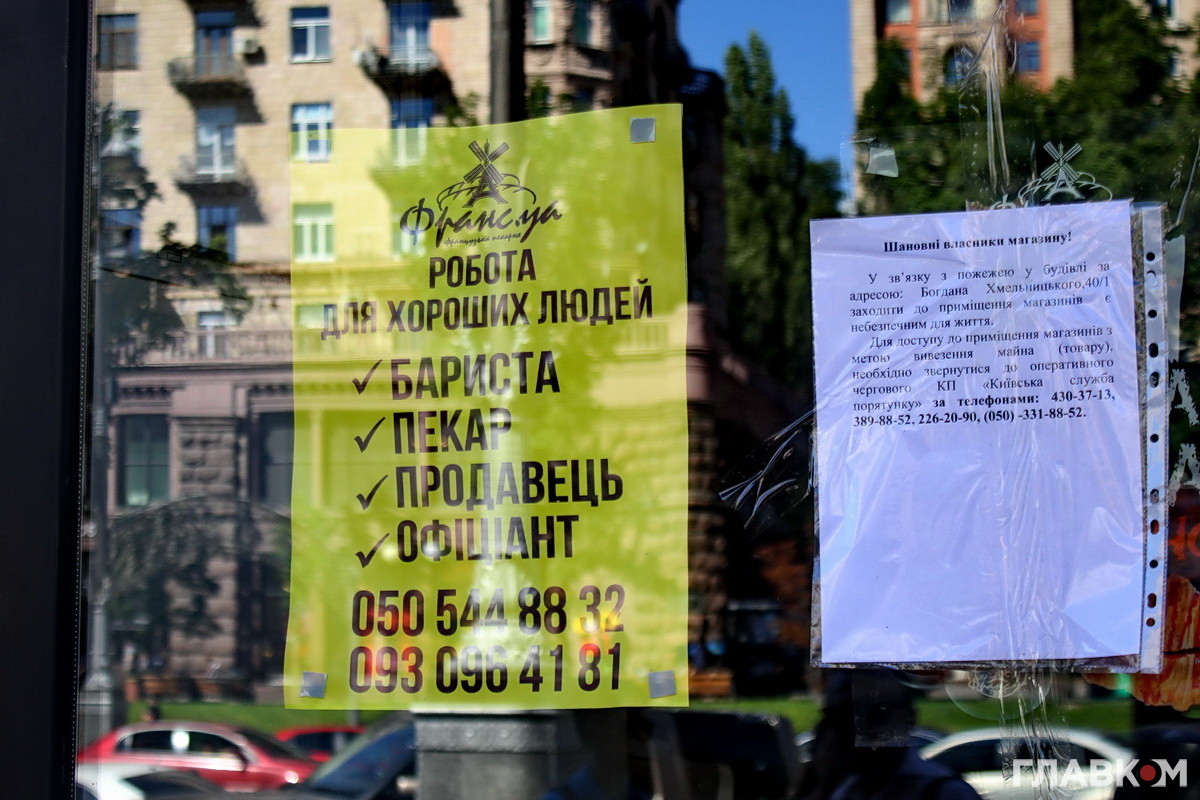 Франсуа
французька пекарня
РОБОТА
ДЛЯ ХОРОШИХ ЛЮДЕЙ
✓ БАРИСТА
✓ ПЕКАР
✓ ПРОДАВЕЦЬ
✓ ОФІЦІАНТ
050 544 88 32
093 096 41 81
Шановні власники магазину!
У зв’язку з пожежею у будівлі за
адресою: Богдана Хмельницького,40/1
заходити до приміщення магазинів є
небезпечним для життя.
Для доступу до приміщення магазинів з
метою вивезення майна (товару),
необхідно звернутися до оперативного
чергового КП «Київська служба
порятунку» за телефонами: 430-37-13,
389-88-52, 226-20-90, (050) -331-88-52.
ГЛАВКОМ